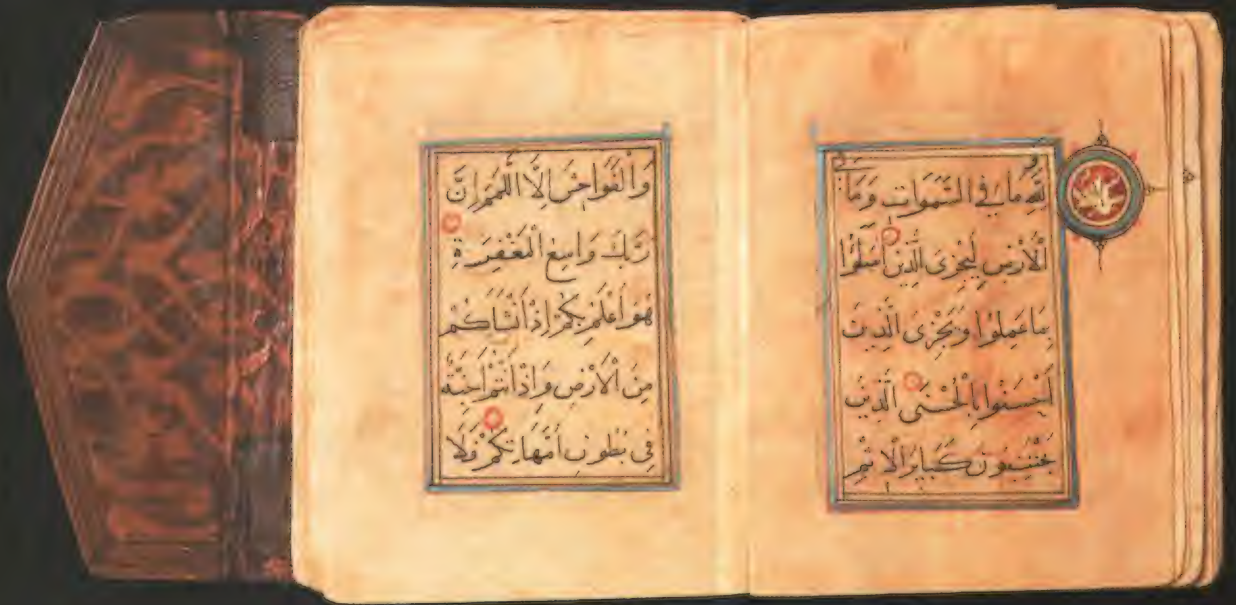 وَلِلَّهِ مَا فِي السَّمَوَاتِ وَمَا فِي
الْأَرْضِ لِيَجْزِىَ الَّذِينَ أَسَٓاؤُا
بِمَا عَمِلُوا وَيَجْزِىَ الَّذِينَ
أَحْسَنُوا بِالْحُسْنَى الَّذِينَ
يَجْتَنِبُونَ كَبَايِرَ الْإِثْمِ
وَالْفَوَاحِشَ إِلَّا اللَّمَمَ إِنَّ
رَبَّكَ وَاسِعُ الْمَغْفِرَةِ
هُوَ أَعْلَمُ بِكُمْ إِذْ أَنْشَأَكُمْ
مِنَ الْأَرْضِ وَإِذْ أَنْتُمْ أَجِنَّةٌ
فِي بُطُونِ أُمَّهَاتِكُمْ فَلَا